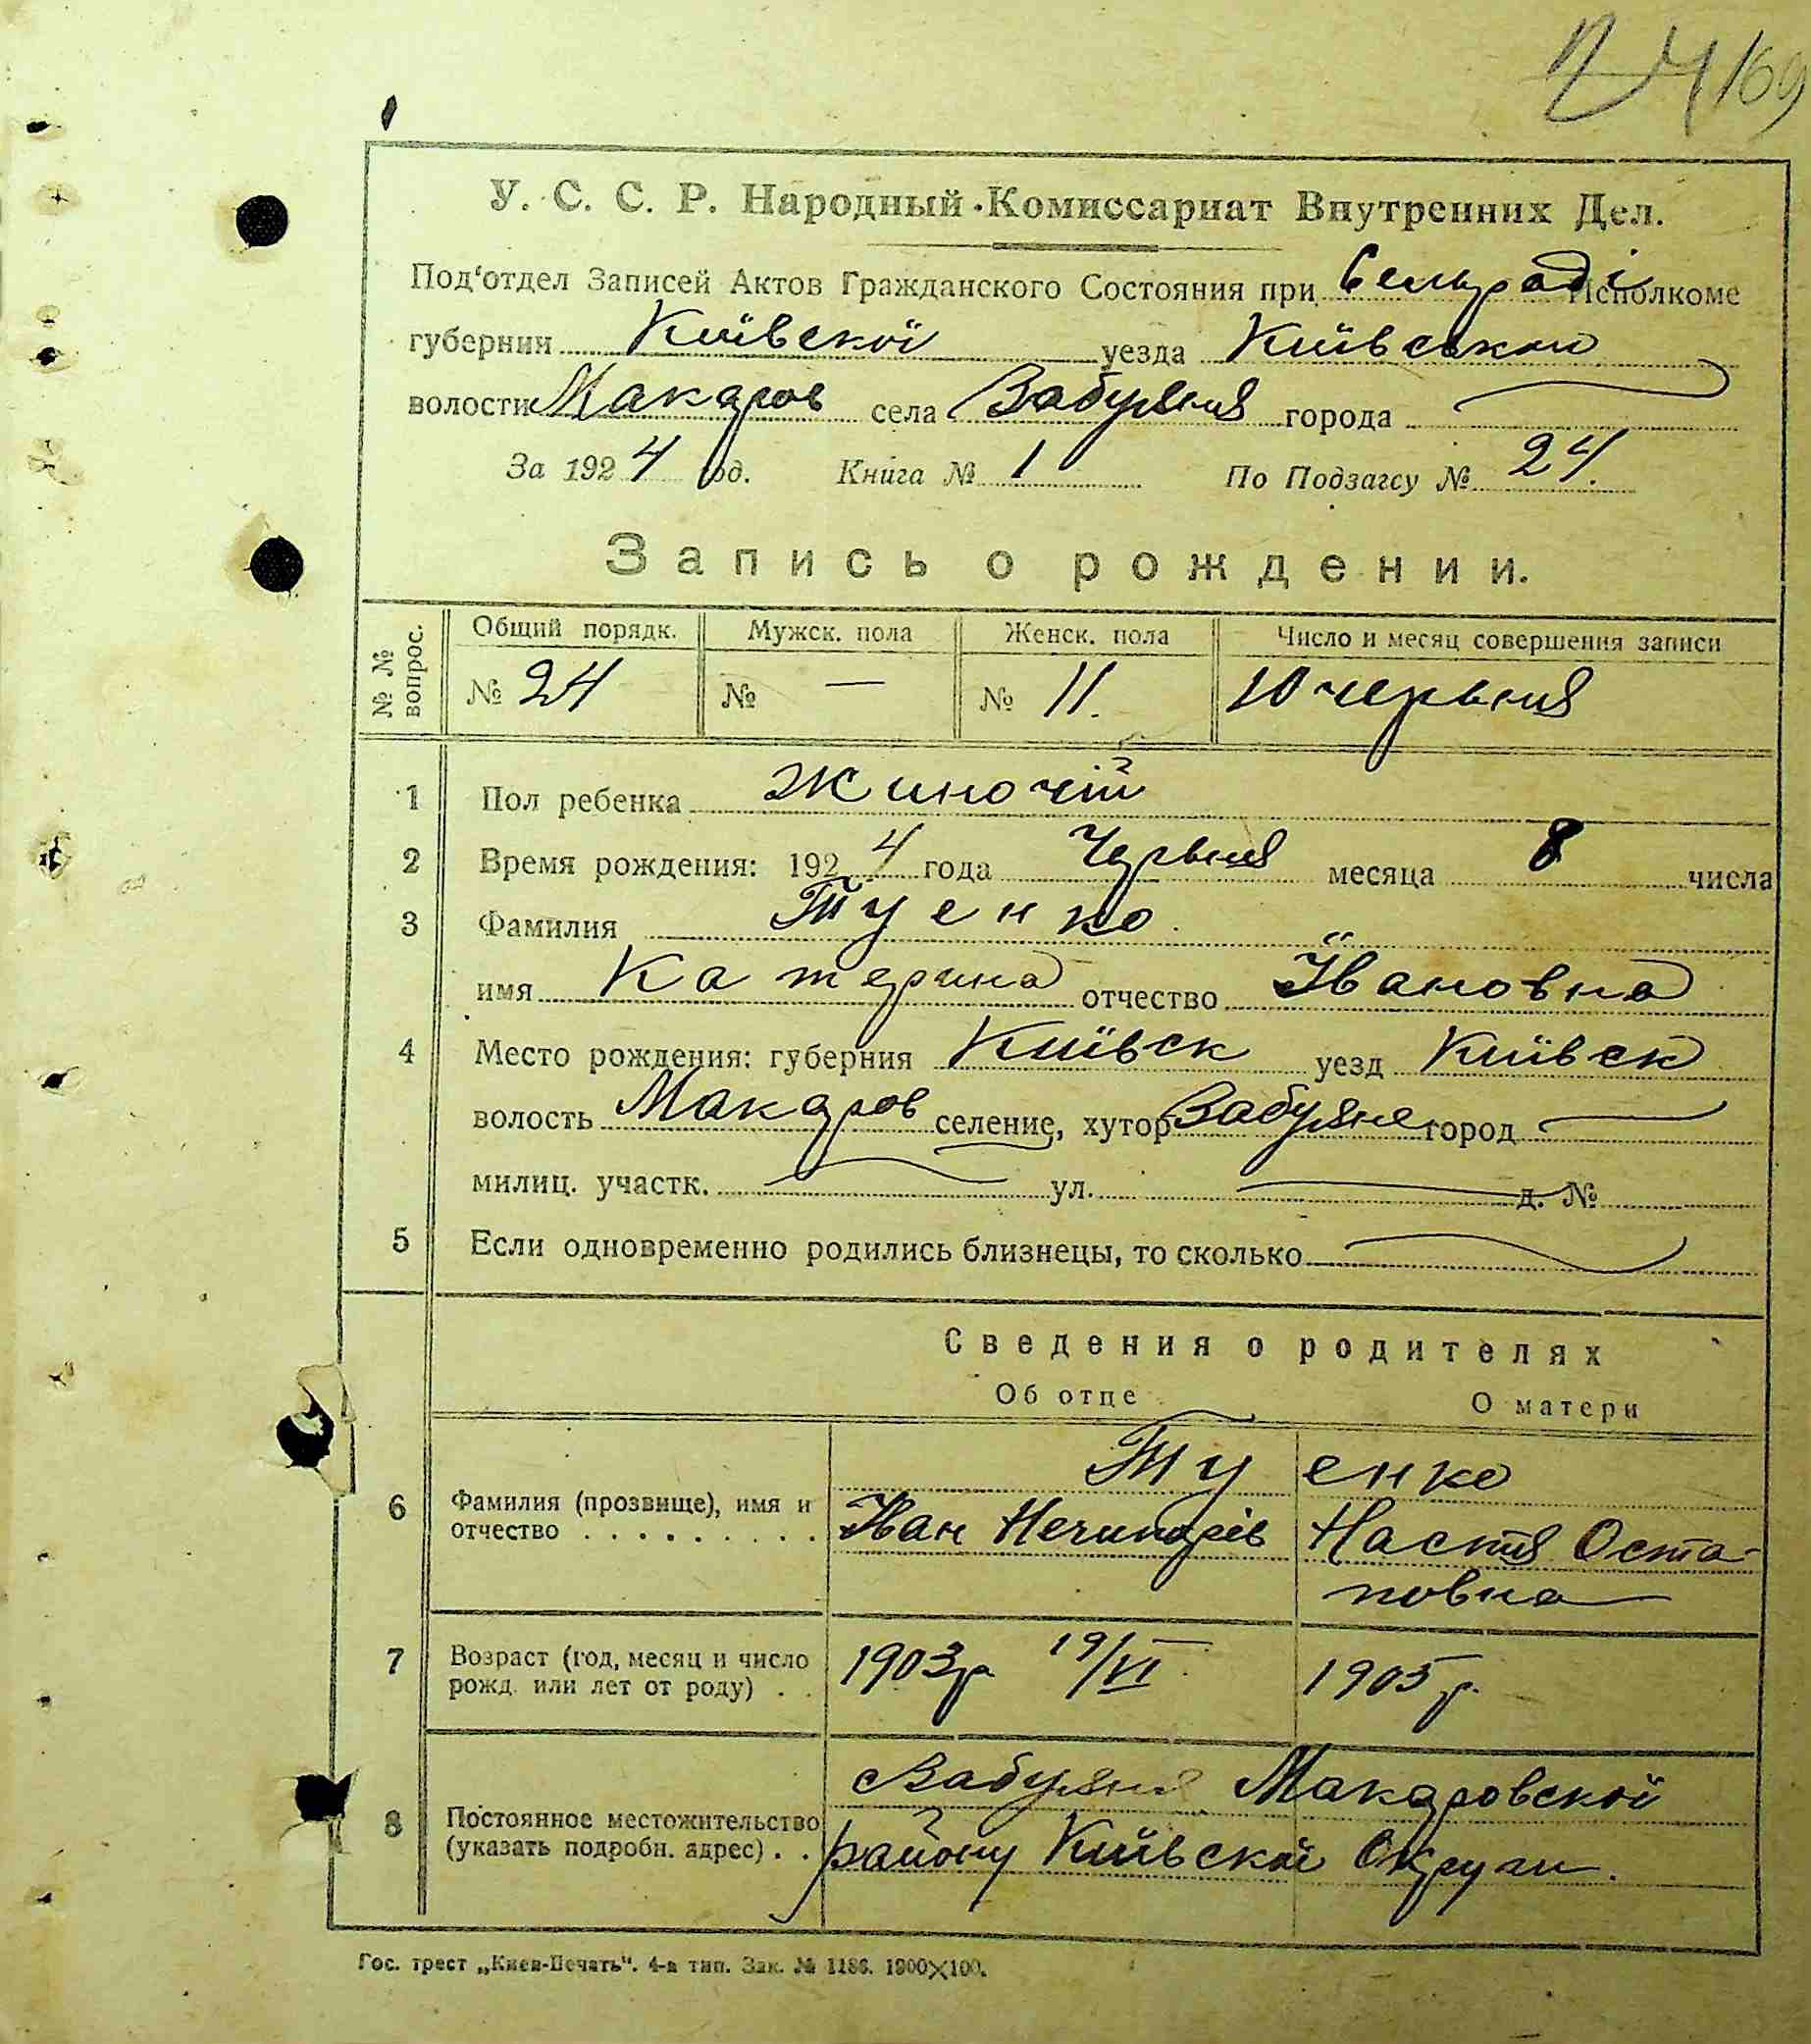 24 169
У. С. С. Р. Народный Комиссариат Внутренних Дел.
Под'отдел Записей Актов Гражданского Состояния при Сельраді Исполкоме
губернии Київскої уезда Київськои
волости Макаров села Забуяння города
За 1924 год. Книга № 1 По Подзагсу № 24.
Запись о рождении.
№ № вопрос. Общий порядк. Мужск. пола Женск. пола Число и месяц совершения записи
№ 24 № — № 11. 10 червня
1 Пол ребенка Жиночій
2 Время рождения: 1924 года Червня месяца 8 числа
3 Фамилия Туенко
имя Катерина отчество Івановна
4 Место рождения: губерния Київск уезд Київск
волость Макаров селение, хутор Забуяне город
милиц. участк. ул. д. №
5 Если одновременно родились близнецы, то сколько
Сведения о родителях
Об отце О матери
Туенко
6 Фамилия (прозвище), имя и Іван Нечипорів Настя Оста-
отчество . . . . . . . . . повна
7 Возраст (год, месяц и число 1903р 19/VI 1905р.
рожд. или лет от роду) . .
Забуяня Макаровской
8 Постоянное местожительство району Київскої Округи.
(указать подробн. адрес) . .
Гос. трест „Киев-Печать". 4-я тип. Зак. № 1186. 1900×100.